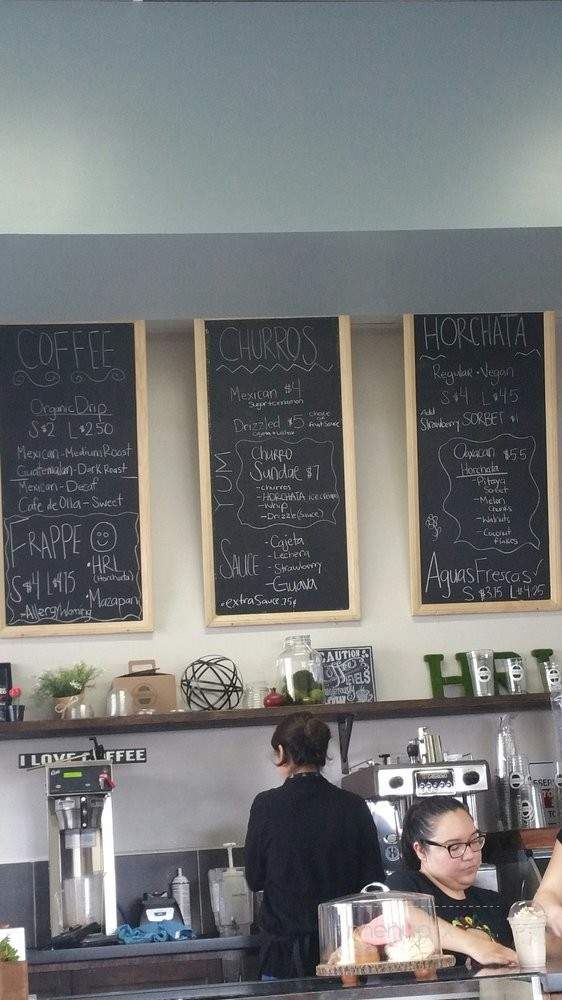 COFFEE
Organic Drip
S $2 L $2.50
Mexican - Medium Roast
Guatemalan - Dark Roast
Mexican - Decaf
Cafe de Olla - Sweet
FRAPPE
S $4 L $4.75
- Allergy Warning
• HRL
(Horchata)
• Mazapan
CHURROS
Mexican $4
Sugar + cinnamon
Drizzled $5
choice of
Fruit Sauce
YUM
Churro
Sundae $7
- churros
- HORCHATA ice cream
- Whip
- Drizzle (Sauce)
SAUCE
- Cajeta
- Lechera
- Strawberry
- Guava
• extra Sauce .75¢
HORCHATA
Regular • Vegan
S $4 L $4.5
Add
Strawberry SORBET $1
Oaxacan $5.5
Horchata
- Pitaya
Sorbet
- Melon
Chunks
- Walnuts
- Coconut
flakes
Aguas Frescas
S $3.75 L $4.25
CAUTION
HRL
I LOVE COFFEE
menu